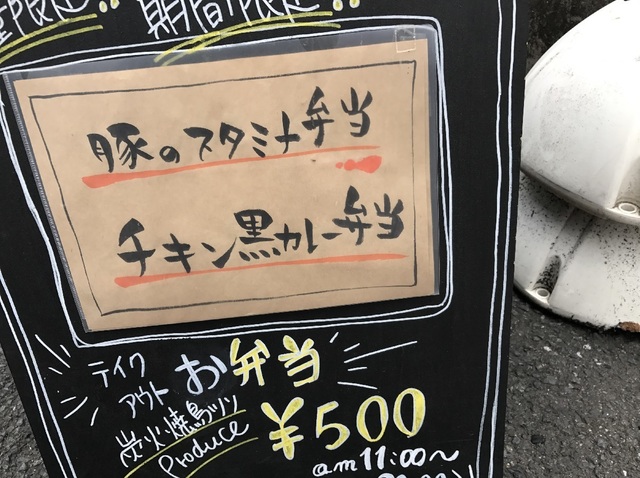 期間限定!!
豚のスタミナ弁当
チキン黒カレー弁当
テイク
アウト
お弁当
炭火焼鳥ツジ
produce
¥500
am11:00〜